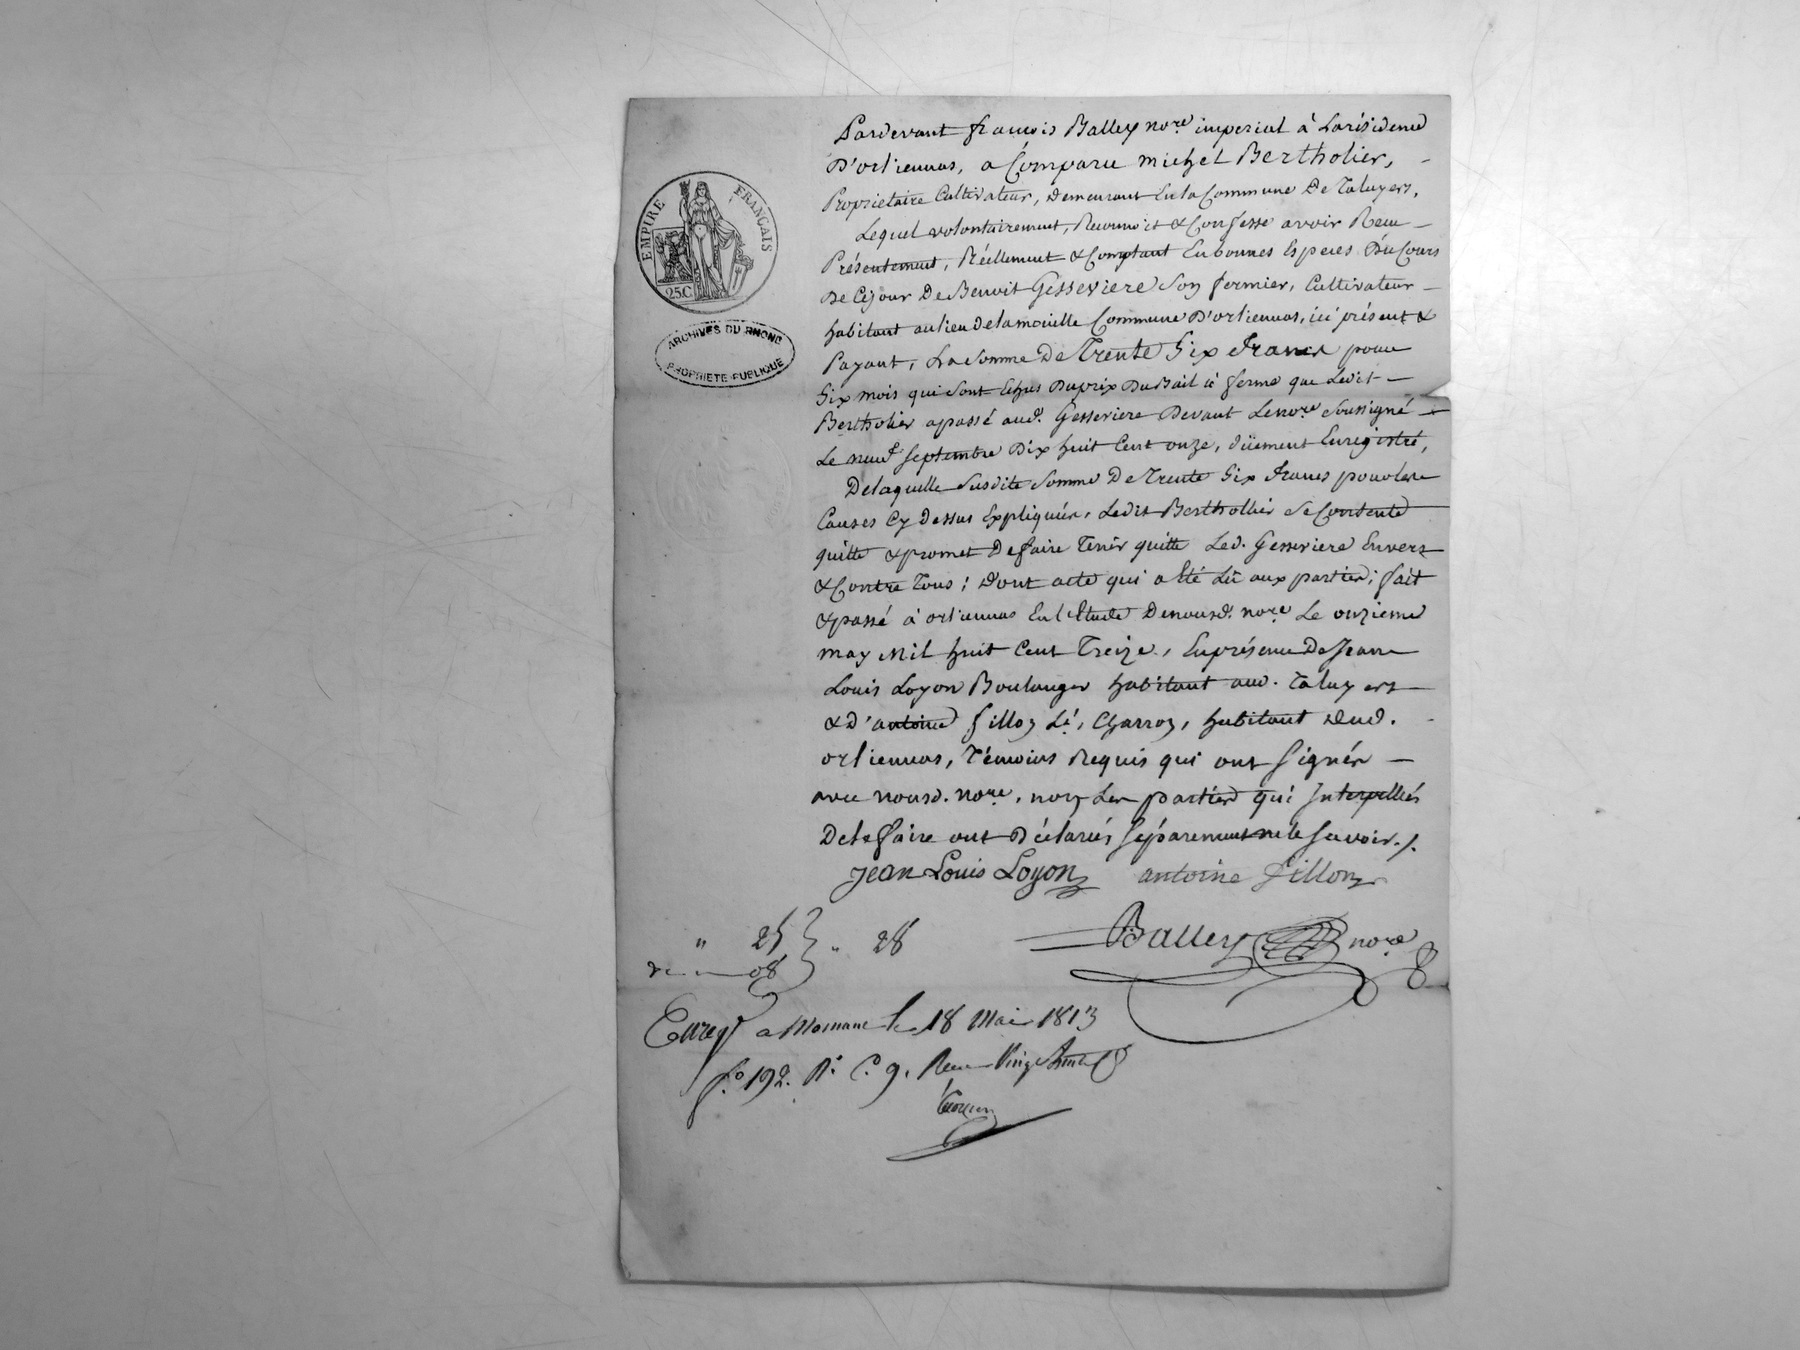 EMPIRE FRANÇAIS
25.C.
ARCHIVES DU RHONE
PROPRIETE PUBLIQUE
Pardevant françois Balley no.re imperial à Larésidence
D'orliennas, a Comparu michel Bertholier,
Propriétaire Cultivateur, demeurant En la Commune De Taluyers,
Lequel volontairement, Reconnoit & Confesse avoir Reçu
Présentement, Réellement & Comptant En bonnes Espèces Du Cours
De Cejour De Benoit Gesseviere Son fermier, Cultivateur
habitant au lieu delamouille Commune D'orliennas, ici présent &
Payant, La Somme De Trente Six Francs pour
Six mois qui Sont Echus Du prix Du Bail à ferme que Ledit
Bertholier a passé aud. Gesseviere Devant Le no.re Soussigné
Le neuf Septembre Dix huit Cent onze, düement Enregistré,
De laquelle Susdite Somme De Trente Six Francs pour les
Causes Cy Dessus Expliquées, Ledit Berthollier Se Contente
quitte & promet De faire Tenir quitte Led. Gesseviere Envers
& Contre Tous; dont acte qui a Eté Lû aux parties; fait
& passé à orliennas En l'Etude De nousd. no.re Le onzieme
may Mil huit Cent Treize, En présence De Jean
Louis Loyon Boulanger habitant aud. Taluyers
& D'antoine fillon Charron, habitant Aud.
orliennas, Témoins Requis qui ont Signés
avec nousd. no.re, non Les parties qui Interpellés
De le faire ont Déclarés Séparement ne le Savoir./.
Jean Louis Loyon antoine fillon
Balley no.re
" 25 } " 28
08
Enreg a Mornant le 18 Mai 1813
f.o 192. R.o C.o 9. Recu Vingt huit